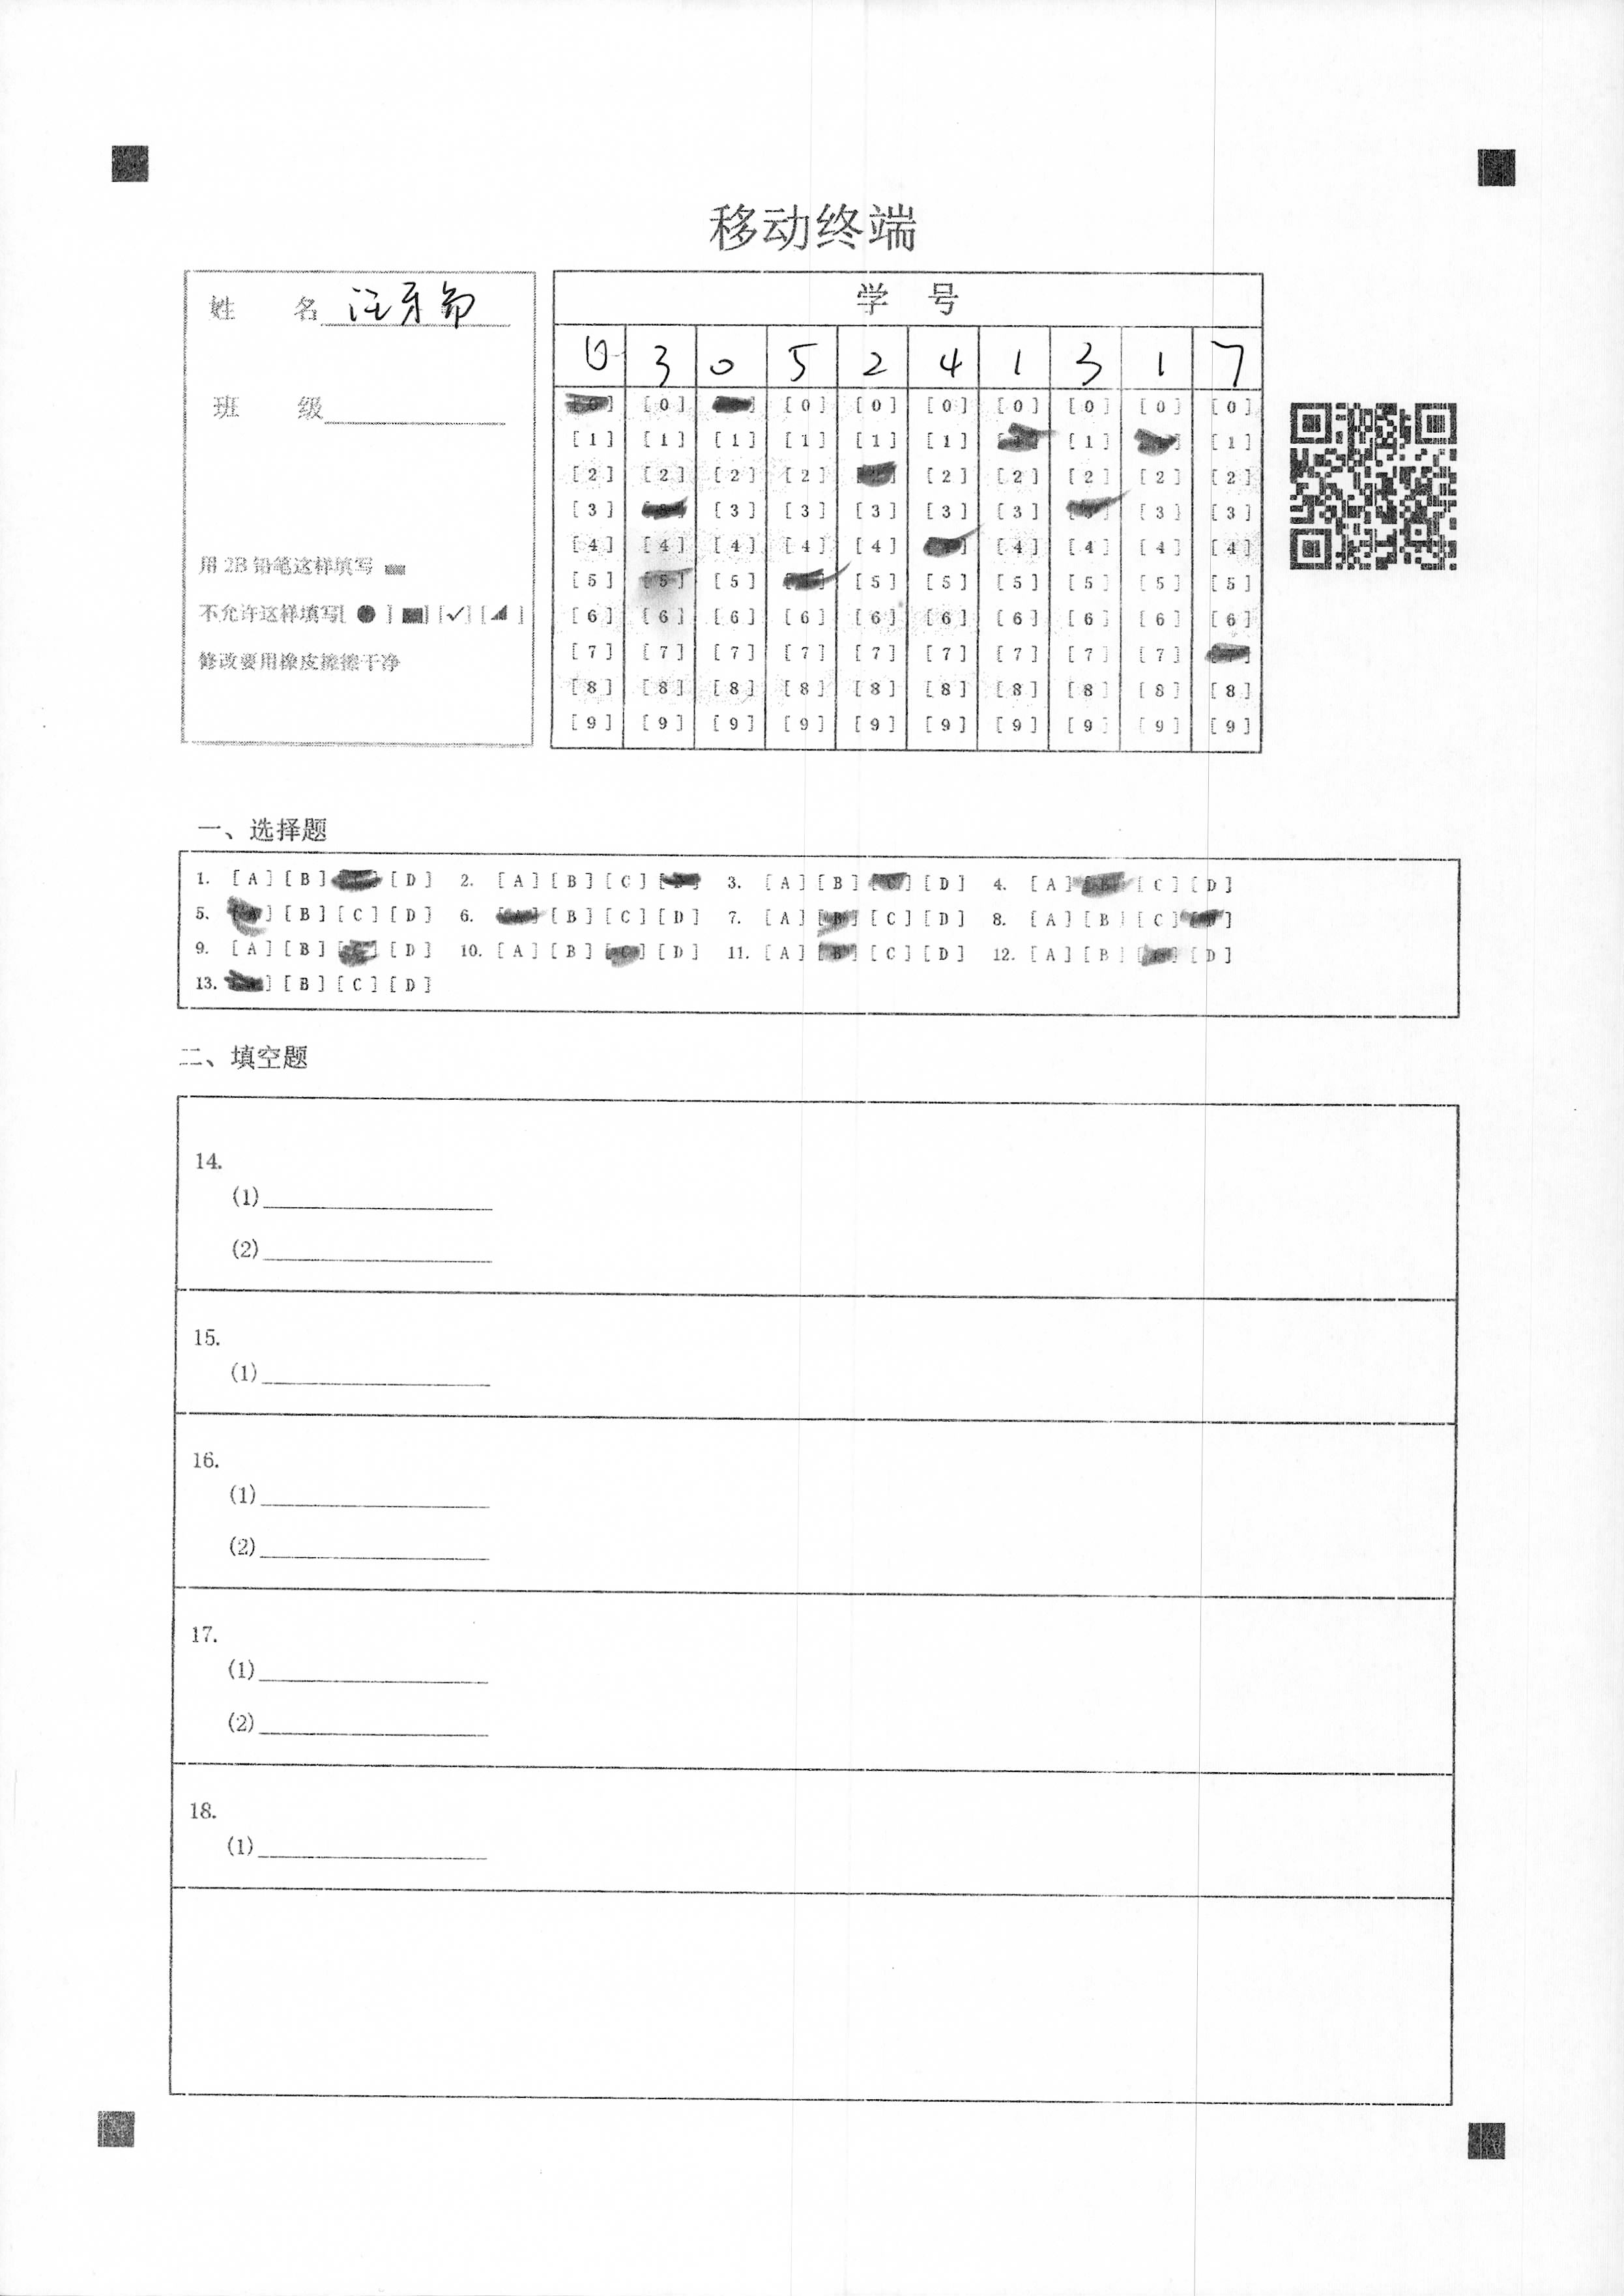 移动终端
姓 名 汪牙
班 级
用2B铅笔这样填写
不允许这样填写[ ● ] [■] [✓] [◢ ]
修改要用橡皮擦擦干净
学 号
0 3 0 5 2 4 1 3 1 7
[0] [0] [0] [0] [0] [0] [0] [0]
[1] [1] [1] [1] [1] [1] [1] [1]
[2] [2] [2] [2] [2] [2] [2] [2] [2]
[3] [3] [3] [3] [3] [3] [3] [3]
[4] [4] [4] [4] [4] [4] [4] [4] [4]
[5] [5] [5] [5] [5] [5] [5] [5] [5]
[6] [6] [6] [6] [6] [6] [6] [6] [6] [6]
[7] [7] [7] [7] [7] [7] [7] [7] [7]
[8] [8] [8] [8] [8] [8] [8] [8] [8] [8]
[9] [9] [9] [9] [9] [9] [9] [9] [9] [9]
一、选择题
1. [A] [B] [D] 2. [A] [B] [C] 3. [A] [B] [D] 4. [A] [C] [D]
5. [B] [C] [D] 6. [B] [C] [D] 7. [A] [B] [C] [D] 8. [A] [B] [C]
9. [A] [B] [C] [D] 10. [A] [B] [C] [D] 11. [A] [B] [C] [D] 12. [A] [B] [D]
13. [B] [C] [D]
二、填空题
14.
(1)
(2)
15.
(1)
16.
(1)
(2)
17.
(1)
(2)
18.
(1)